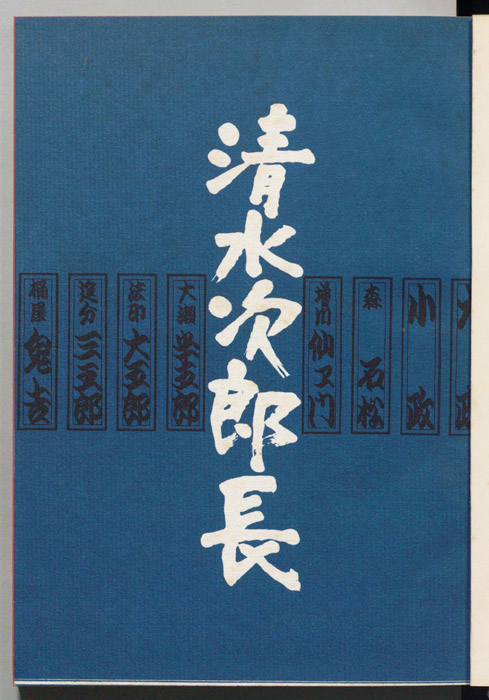 清水次郎長
大政
小政
森 石松
増川 仙ヱ門
大瀬 半五郎
法印 大五郎
追分 三五郎
桶屋 鬼吉